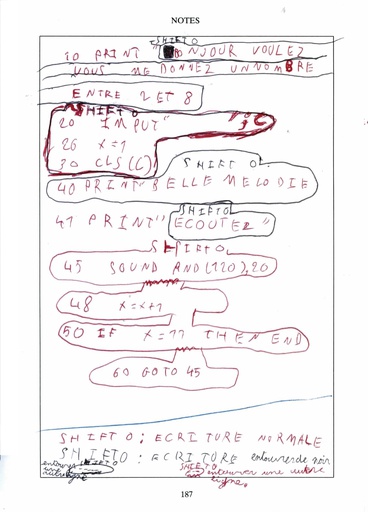 NOTES
SHIFT O
10 PRINT "BONJOUR VOULEZ
VOUS ME DONNEZ UN NOMBRE
ENTRE 2 ET 8
SHIFT O
20 IMPUT" ";C
26 X=1
30 CLS(C)
SHIFT O
40 PRINT"BELLE MELODIE
SHIFTO
41 PRINT" ECOUTEZ "
SHIFTO
45 SOUND RND(120),20
48 X=X+1
50 IF X=11 THEN END
60 GOTO 45
SHIFT O : ECRITURE NORMALE
SHIFTO : ECRITURE entourer de noir
entourer SHIFTO
une
ligne
SHIFTO
entourer une autre
ligne.
187